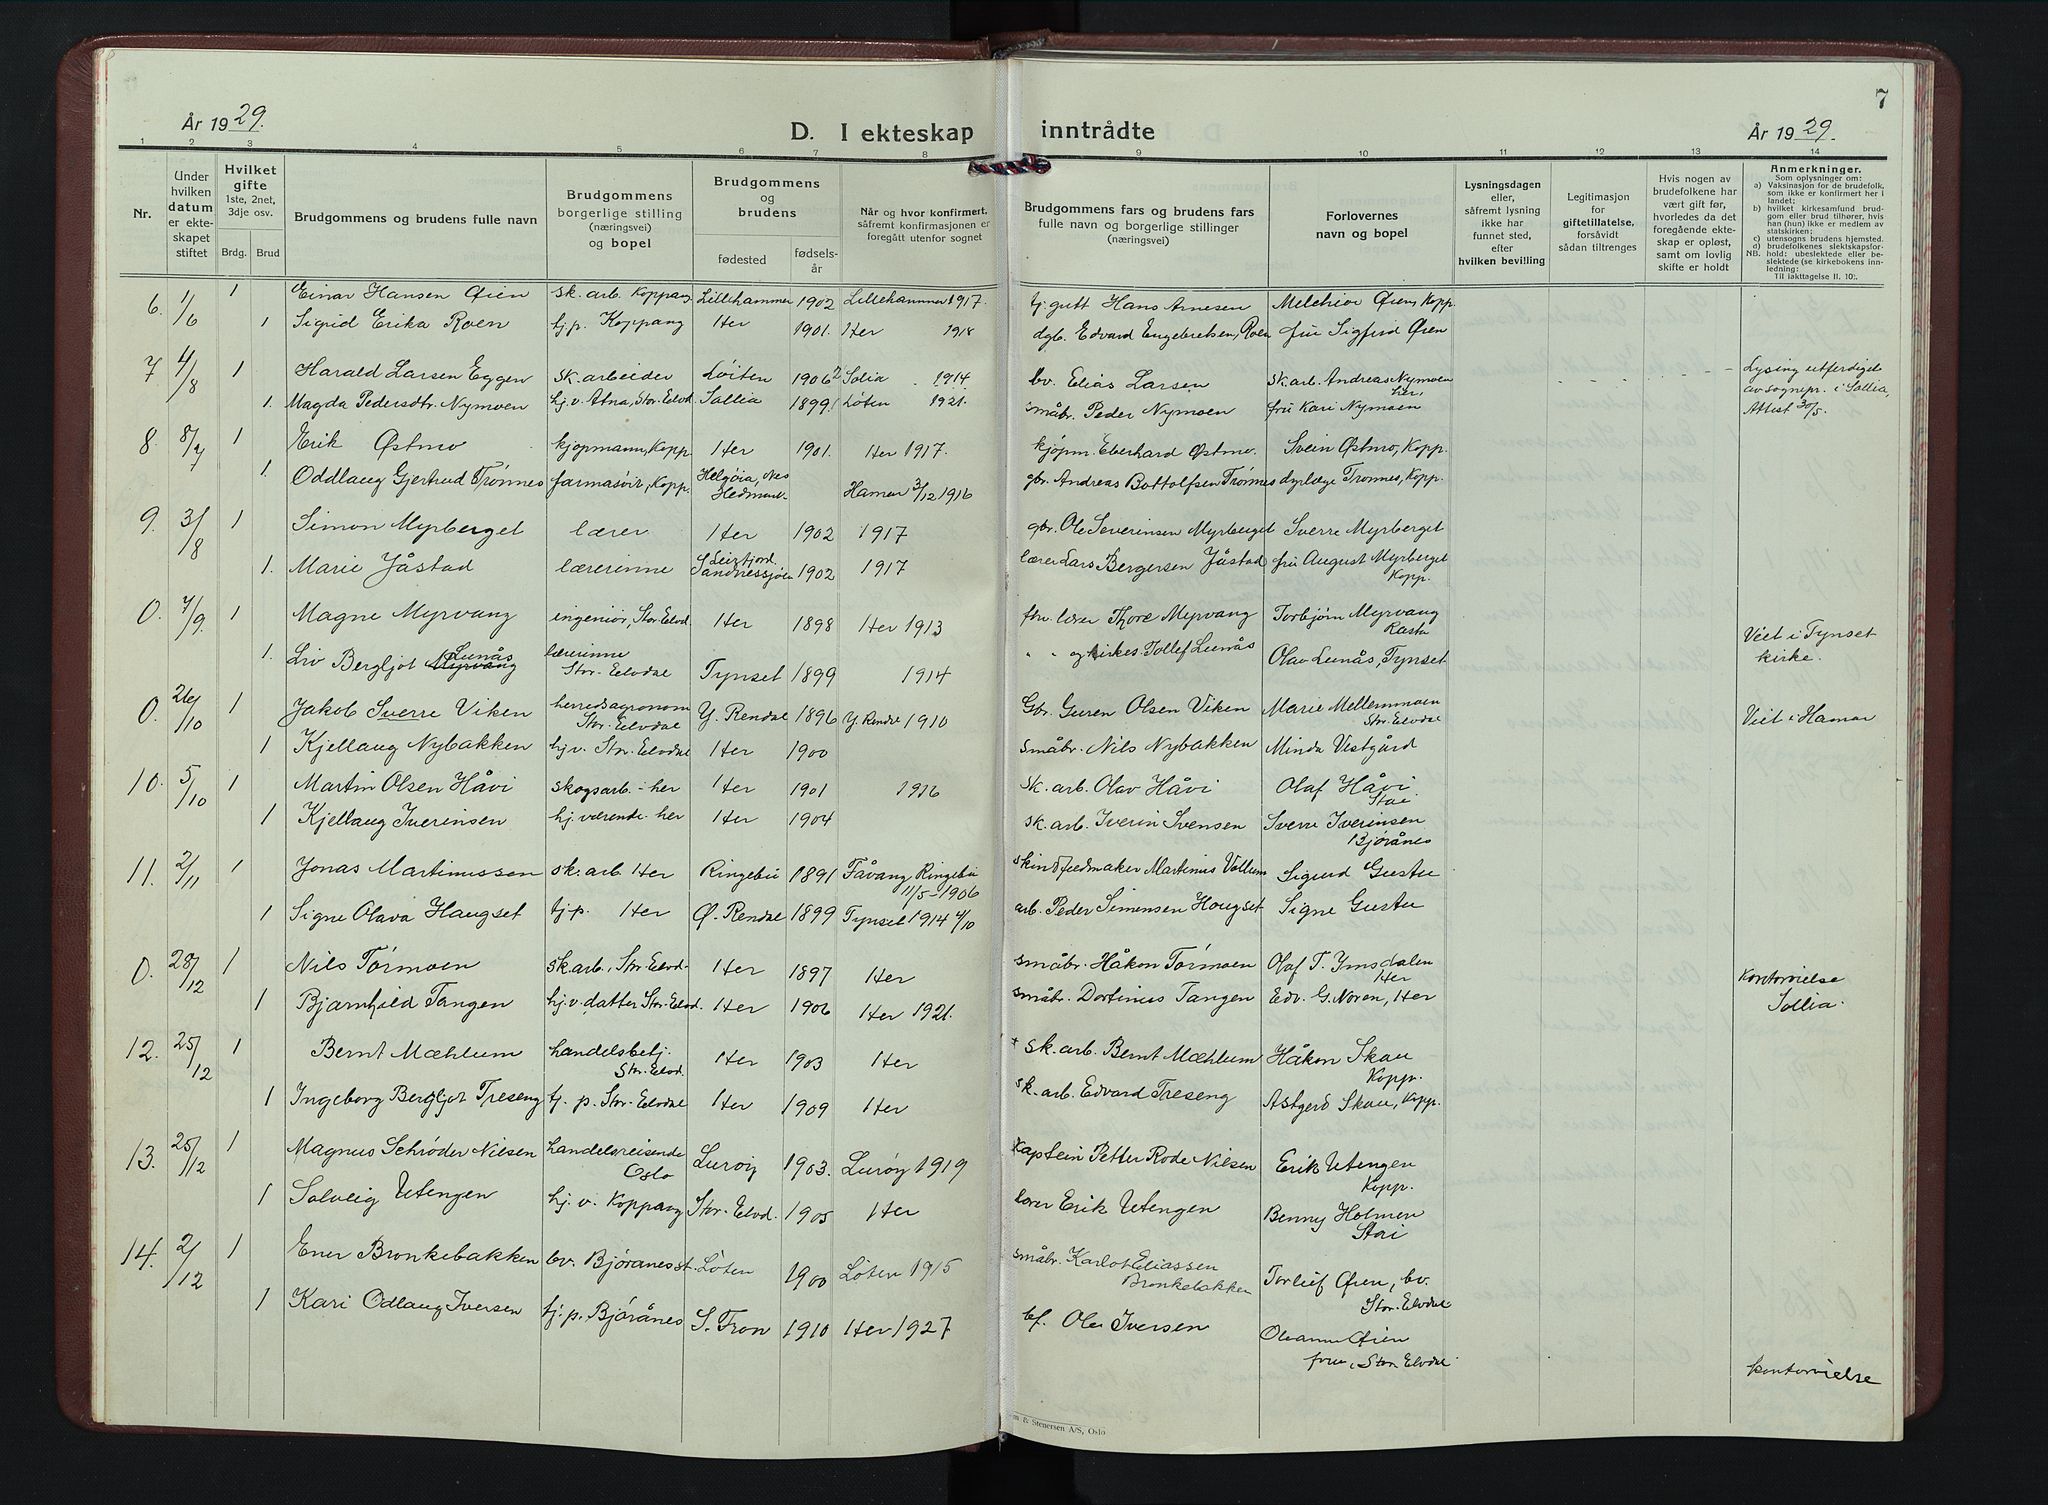 7
År 1929.
D. I ekteskap inntrådte
År 1929.
1 2 3 4 5 6 7 8 9 10 11 12 13 14
Nr.
Under hvilken datum er ekteskapet stiftet
Hvilket gifte 1ste, 2net, 3dje osv.
Brdg. Brud
Brudgommens og brudens fulle navn
Brudgommens borgerlige stilling (næringsvei) og bopel
Brudgommens og brudens
fødested
fødselsår
Når og hvor konfirmert, såfremt konfirmasjonen er foregått utenfor sognet
Brudgommens fars og brudens fars fulle navn og borgerlige stillinger (næringsvei)
Forlovernes navn og bopel
Lysningsdagen eller, såfremt lysning ikke har funnet sted, efter hvilken bevilling
Legitimasjon for giftetillatelse, forsåvidt sådan tiltrenges
Hvis nogen av brudefolkene har vært gift før, hvorledes da det foregående ekteskap er opløst, samt om lovlig skifte er holdt
Anmerkninger.
Som oplysninger om:
a) Vaksinasjon for de brudefolk, som ikke er konfirmert her i landet;
b) hvilket kirkesamfund brudgom eller brud tilhører, hvis han (hun) ikke er medlem av statskirken;
c) utensogns brudens hjemsted.
d) brudefolkenes slektskapsforhold: ubeslektede eller beslektede (se kirkebokens innledning:
NB. Til iakttagelse II. 10).
6. 1/6 1 Einar Hansen Øien sk. arb. Koppang Lillehammer 1902 Lillehammer 1917. tj. gutt Hans Arnesen Melchior Øien, Kopp.
1 Sigrid Erika Roen tj. p. Koppang Her 1901. Her 1918 dgb. Edvard Engebretsen, Roen fru Sigfrid Øien
7 4/8 1 Harald Larsen Eggen sk. arbeider Løiten 1906 Solia 1914. bv. Elias Larsen sk. arb. Andreas Nymoen her, Lysing utferdiget av sognepr. i Sollia, Attest 30/5.
1. Magda Pedersdtr. Nymoen hj. v. Atna, Stor-Elvd. Sollia 1899 Løten 1921. småbr. Peder Nymoen fru Kari Nymoen
8. 8/7 1 Erik Østmo kjøpmann, Kopp Her 1901. Her 1917. kjøpm. Eberhard Østmo. Svein Østmo, Kopp.
1. Oddlaug Gjertrud Trønnes farmasøit, Kopp. Helgøia, Nes Hedmark Hamar 3/12 1916 gbr. Andreas Bottolfsen Trønnes dyrlæge Trønnes, Kopp.
9. 3/8 1 Simon Myrberget lærer Her 1902 1917 gbr. Ole Severinsen Myrberget Sverre Myrberget
1. Marie Jåstad lærerinne Leirfjord Sandnessjøen 1902 1917 lærer Lars Bergersen Jåstad fru August Myrberget Kopp.
0. 7/9. 1 Magne Myrvang ingeniør, Stor-Elvd. Her 1898 Her 1913 fhv. lærer Thore Myrvang Torbjørn Myrvang Rasta
1. Liv Bergljot Myrvang Lunås lærerinne Stor-Elvdal Tynset 1899 1914 " " og kirkes. Tollef Lunås Olav Lunås, Tynset Viet i Tynset kirke.
0. 26/10 1 Jakob Sverre Viken herredsagronom Stor-Elvdal Y. Rendal 1896 Y. Rendal 1910 Gbr. Guren Olsen Viken Marie Mellemmoen Stor-Elvdal Viet i Hamar
1 Kjellaug Nybakken hj. v. Stor-Elvdal Her 1900 småbr. Nils Nybakken Minda Vestgård
10. 5/10 1 Martin Olsen Håvi skogsarb. - her Her 1901 1916 sk. arb. Olav Håvi Olaf Håvi Stai
1 Kjellaug Iverinsen hj. værende - her Her 1904 sk. arb. Iverin Svensen Sverre Iverinsen Bjørånes
11. 2/11 1 Jonas Martinussen sk. arb Her Ringebu 1891 Fåvang, Ringebu 11/5 - 1906 skindfeldmaker Martinus Vollum Sigurd Gustu
1 Signe Olava Haugset tj. p. Her Ø. Rendal 1899 Tynset 1914 4/10 arb. Peder Simensen Hougset Signe Gustu
0. 28/12 1 Nils Tørmoen sk. arb., Stor-Elvd. Her 1897 Her småbr. Håkon Tørmoen Olaf T. Imsdalen Her Kontorvielse Sollia.
1 Bjarnhild Tangen hj. v. datter Stor-Elvd. Her 1906 Her 1921. småbr. Dortinius Tangen Edv. G. Noren, Her
12. 25/12 1 Bernt Mæhlum handelsbetj. Stor-Elvd. Her 1903 Her + sk. arb. Bernt Mæhlum Håkon Skau Kopp.
1 Ingeborg Bergljot Treseng tj. p. Stor-Elvdal Her 1909 Her sk. arb. Edvard Treseng Astgerd Skau, Kopp.
13. 25/12 1 Magnus Schrøder Nilsen handelsreisende Oslo Lurøy 1903. Lurøy 1919 Kaptein Petter Rode Nilsen Erik Utengen Kopp.
1 Solveig Utengen hj. v. Koppang Stor-Elvd. 1905 Her lærer Erik Utengen Benny Holmen Stai
14. 2/12 1 Ener Bronkebakken bv. Bjørånes st. Løten 1900 Løten 1915 småbr. Karlot Eliassen Bronkebakken Torleif Øien, bv. Stor-Elvdal
1 Kari Odlaug Iversen tj. p. Bjørånes S. Fron 1910 Her 1927 bf. Ole Iversen Oleanna Øien frue, Stor-Elvdal Kontorvielse
& Stenersen A/S, Oslo